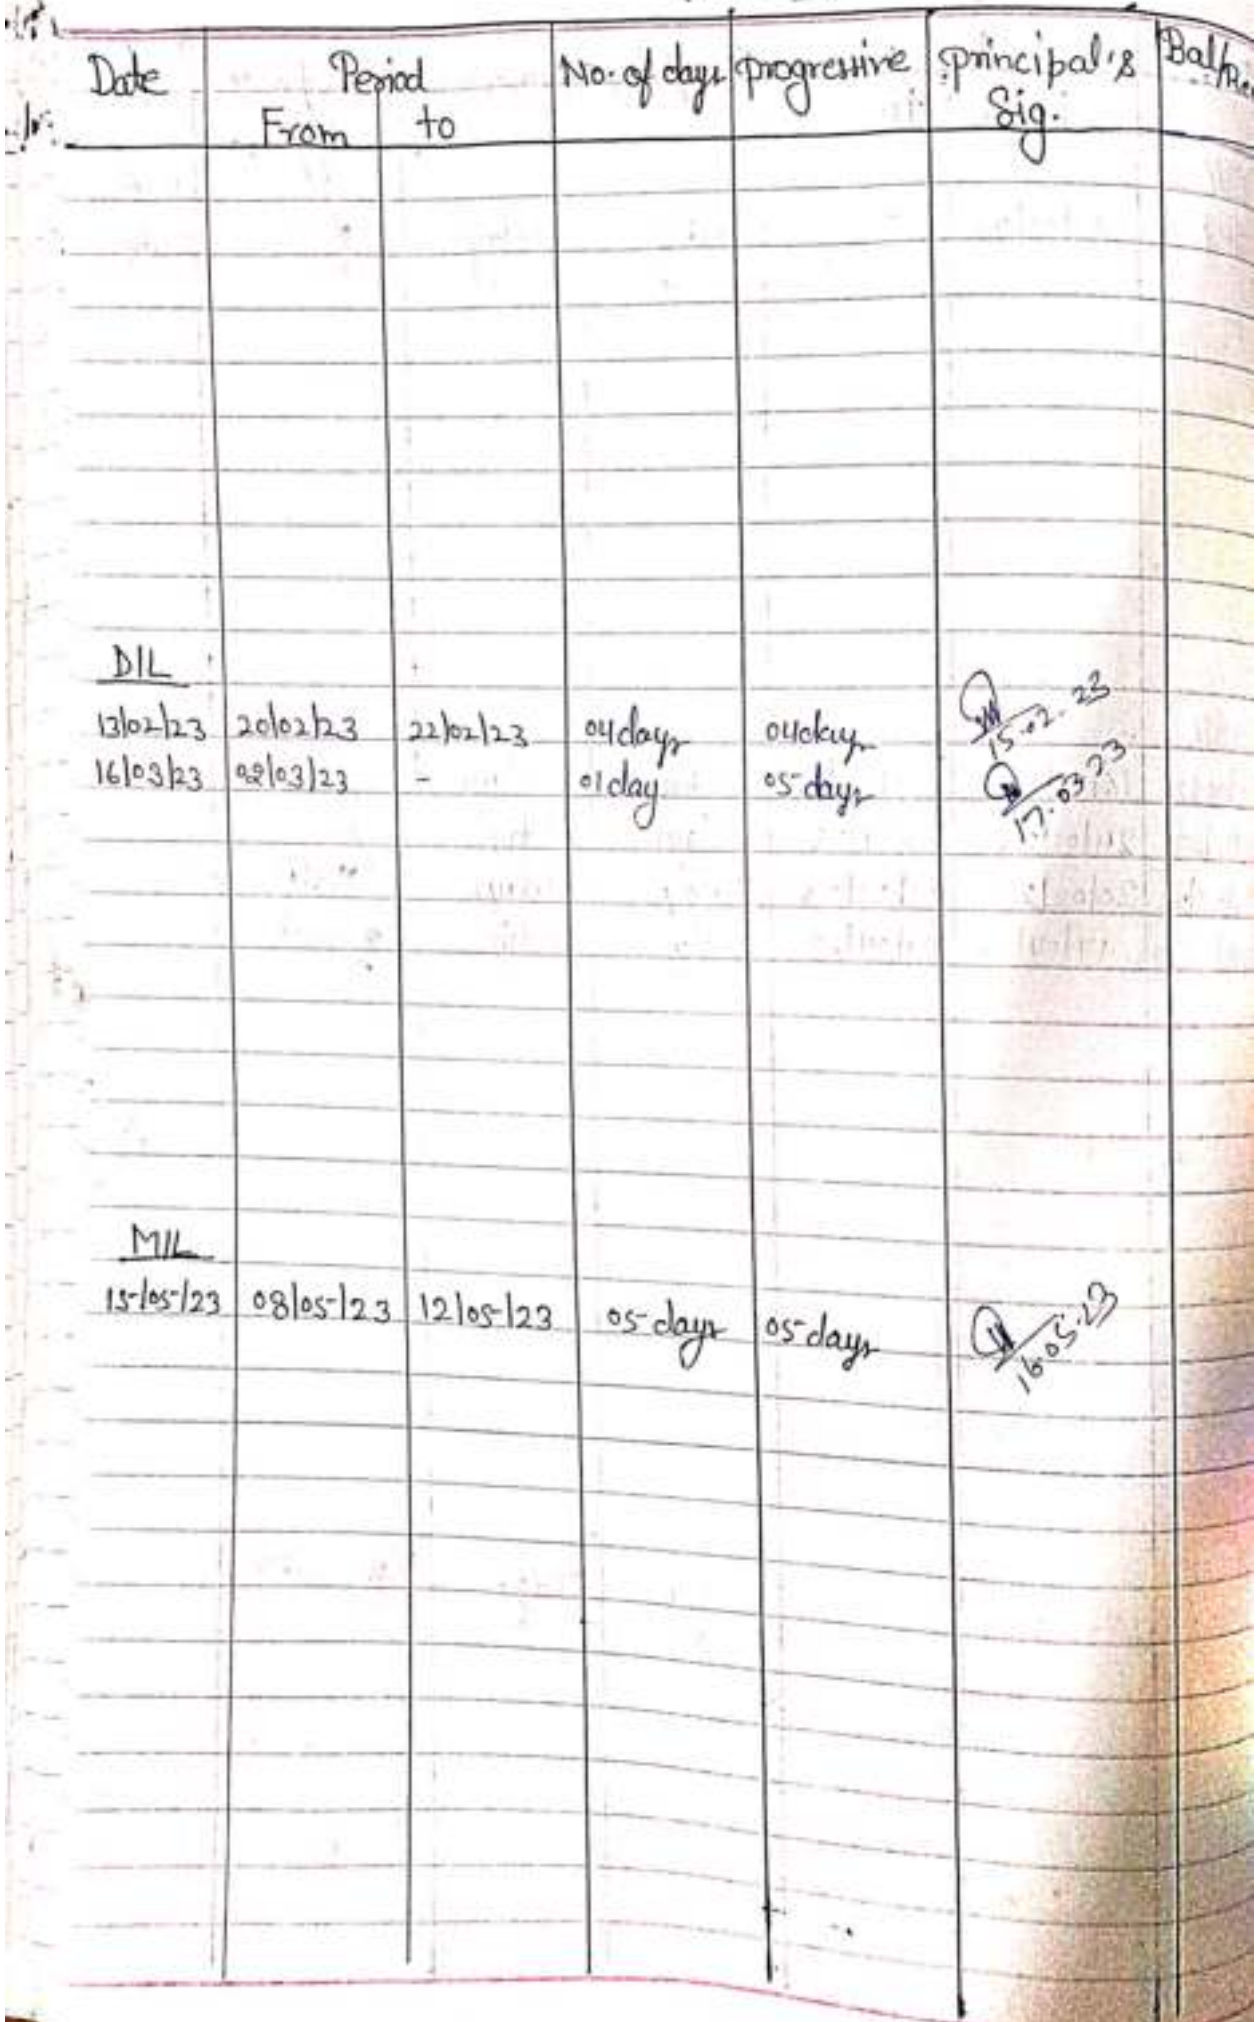 Date Period No. of days progressive principal's
From to Sig.
D/L
13/02/23 20/02/23 22/02/23 04 days 04 days 15.02.23
16/03/23 02/03/23 - 01 day 05 days 17.03.23
M/L
15/05/23 08/05/23 12/05/23 05 days 05 days 16.05.23